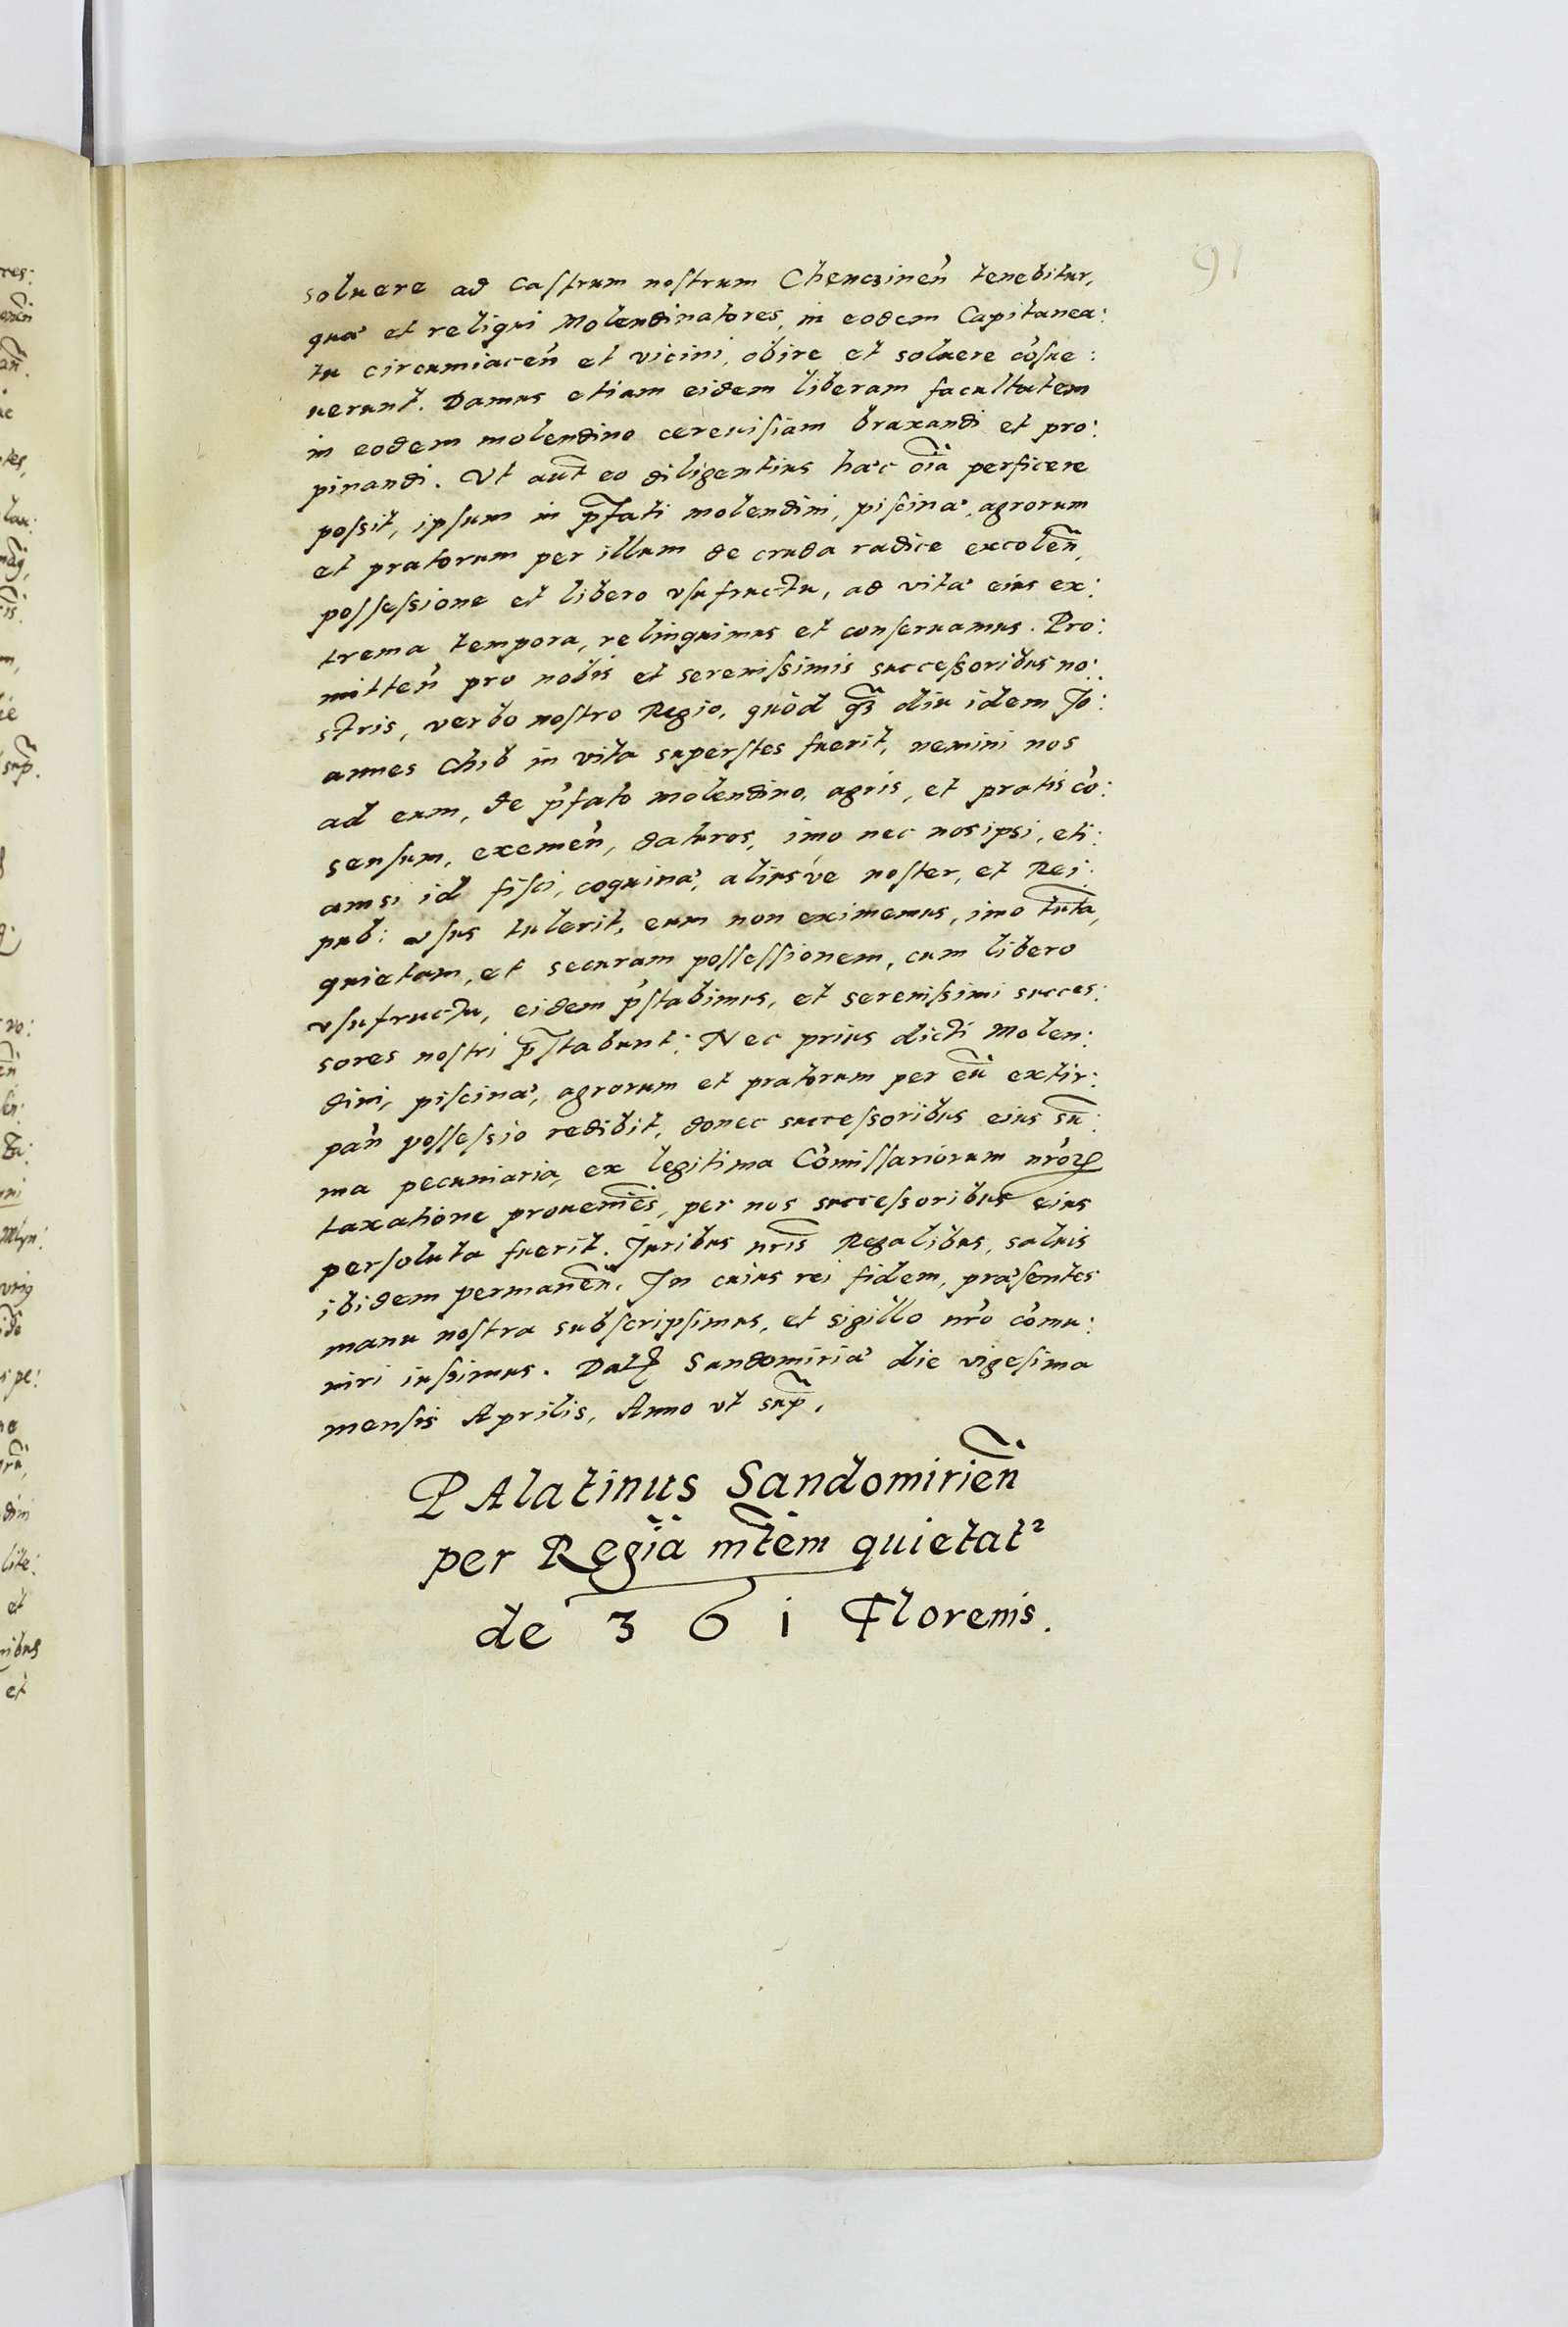 91
soluere ad castrum nostrum Chenczineñ tenebitur,
quæ et reliqui Molendinatores, in eodem Capitanea:
tu circumiaceñ et vicini, obire et soluere cõsue:
uerunt. Damus etiam eidem liberam facultatem
in eodem molendino cereuisiam braxandi et pro:
pinandi. Vt aut̃ eo diligentius hæc oĩa perficere
possit, ipsum in p̃fati molendini, piscinæ, agrorum
et pratorum per illum de cruda radice excoleñ,
possessione et libero vsufructu, ad vitæ eius ex:
trema tempora, relinquimus et conseruamus. Pro:
mitteñ pro nobis et serenissimis successoribus no:
stris, verbo nostro Regio, quòd q̃ʒ diu idem Jo:
annes Chib in vita superstes fuerit, nemini nos
ad eum, de p̃fato molendino, agris, et pratis cõ:
sensum, exemeñ, daturos, imo nec nosipsi, eti:
amsi id fisci, coquinæ, aliusùe noster, et Rei:
pub: vsus tulerit, eum non eximemus, imo tuta,
quietam, et securam possessionem, cum libero
vsufructu, eidem p̃stabimus, et serenissimi succes:
sores nostri p̃stabunt: Nec prius dicti Molen:
dini, piscinæ, agrorum et pratorum per eũ extir:
pañ possessio redibit, donec successoribus eius sũ:
ma pecuniaria, ex legitima Cõmissariorum nr̃oꝝ
taxatione proueniẽs, per nos successoribus eius
persoluta fuerit. Juribus nr̃is Regalibus, saluis
ibidem permaneñ. In cuius rei fidem, præsentes
manu nostra subscripsimus, et sigillo nr̃o cõmu:
niri iussimus. Datꝭ Sandomiriæ die vigesima
mensis Aprilis, Anno vt sup̃.
PAlatinus Sandomirieñ
per Regiã mt̃em quietat²
de 3 6 i Florenis.